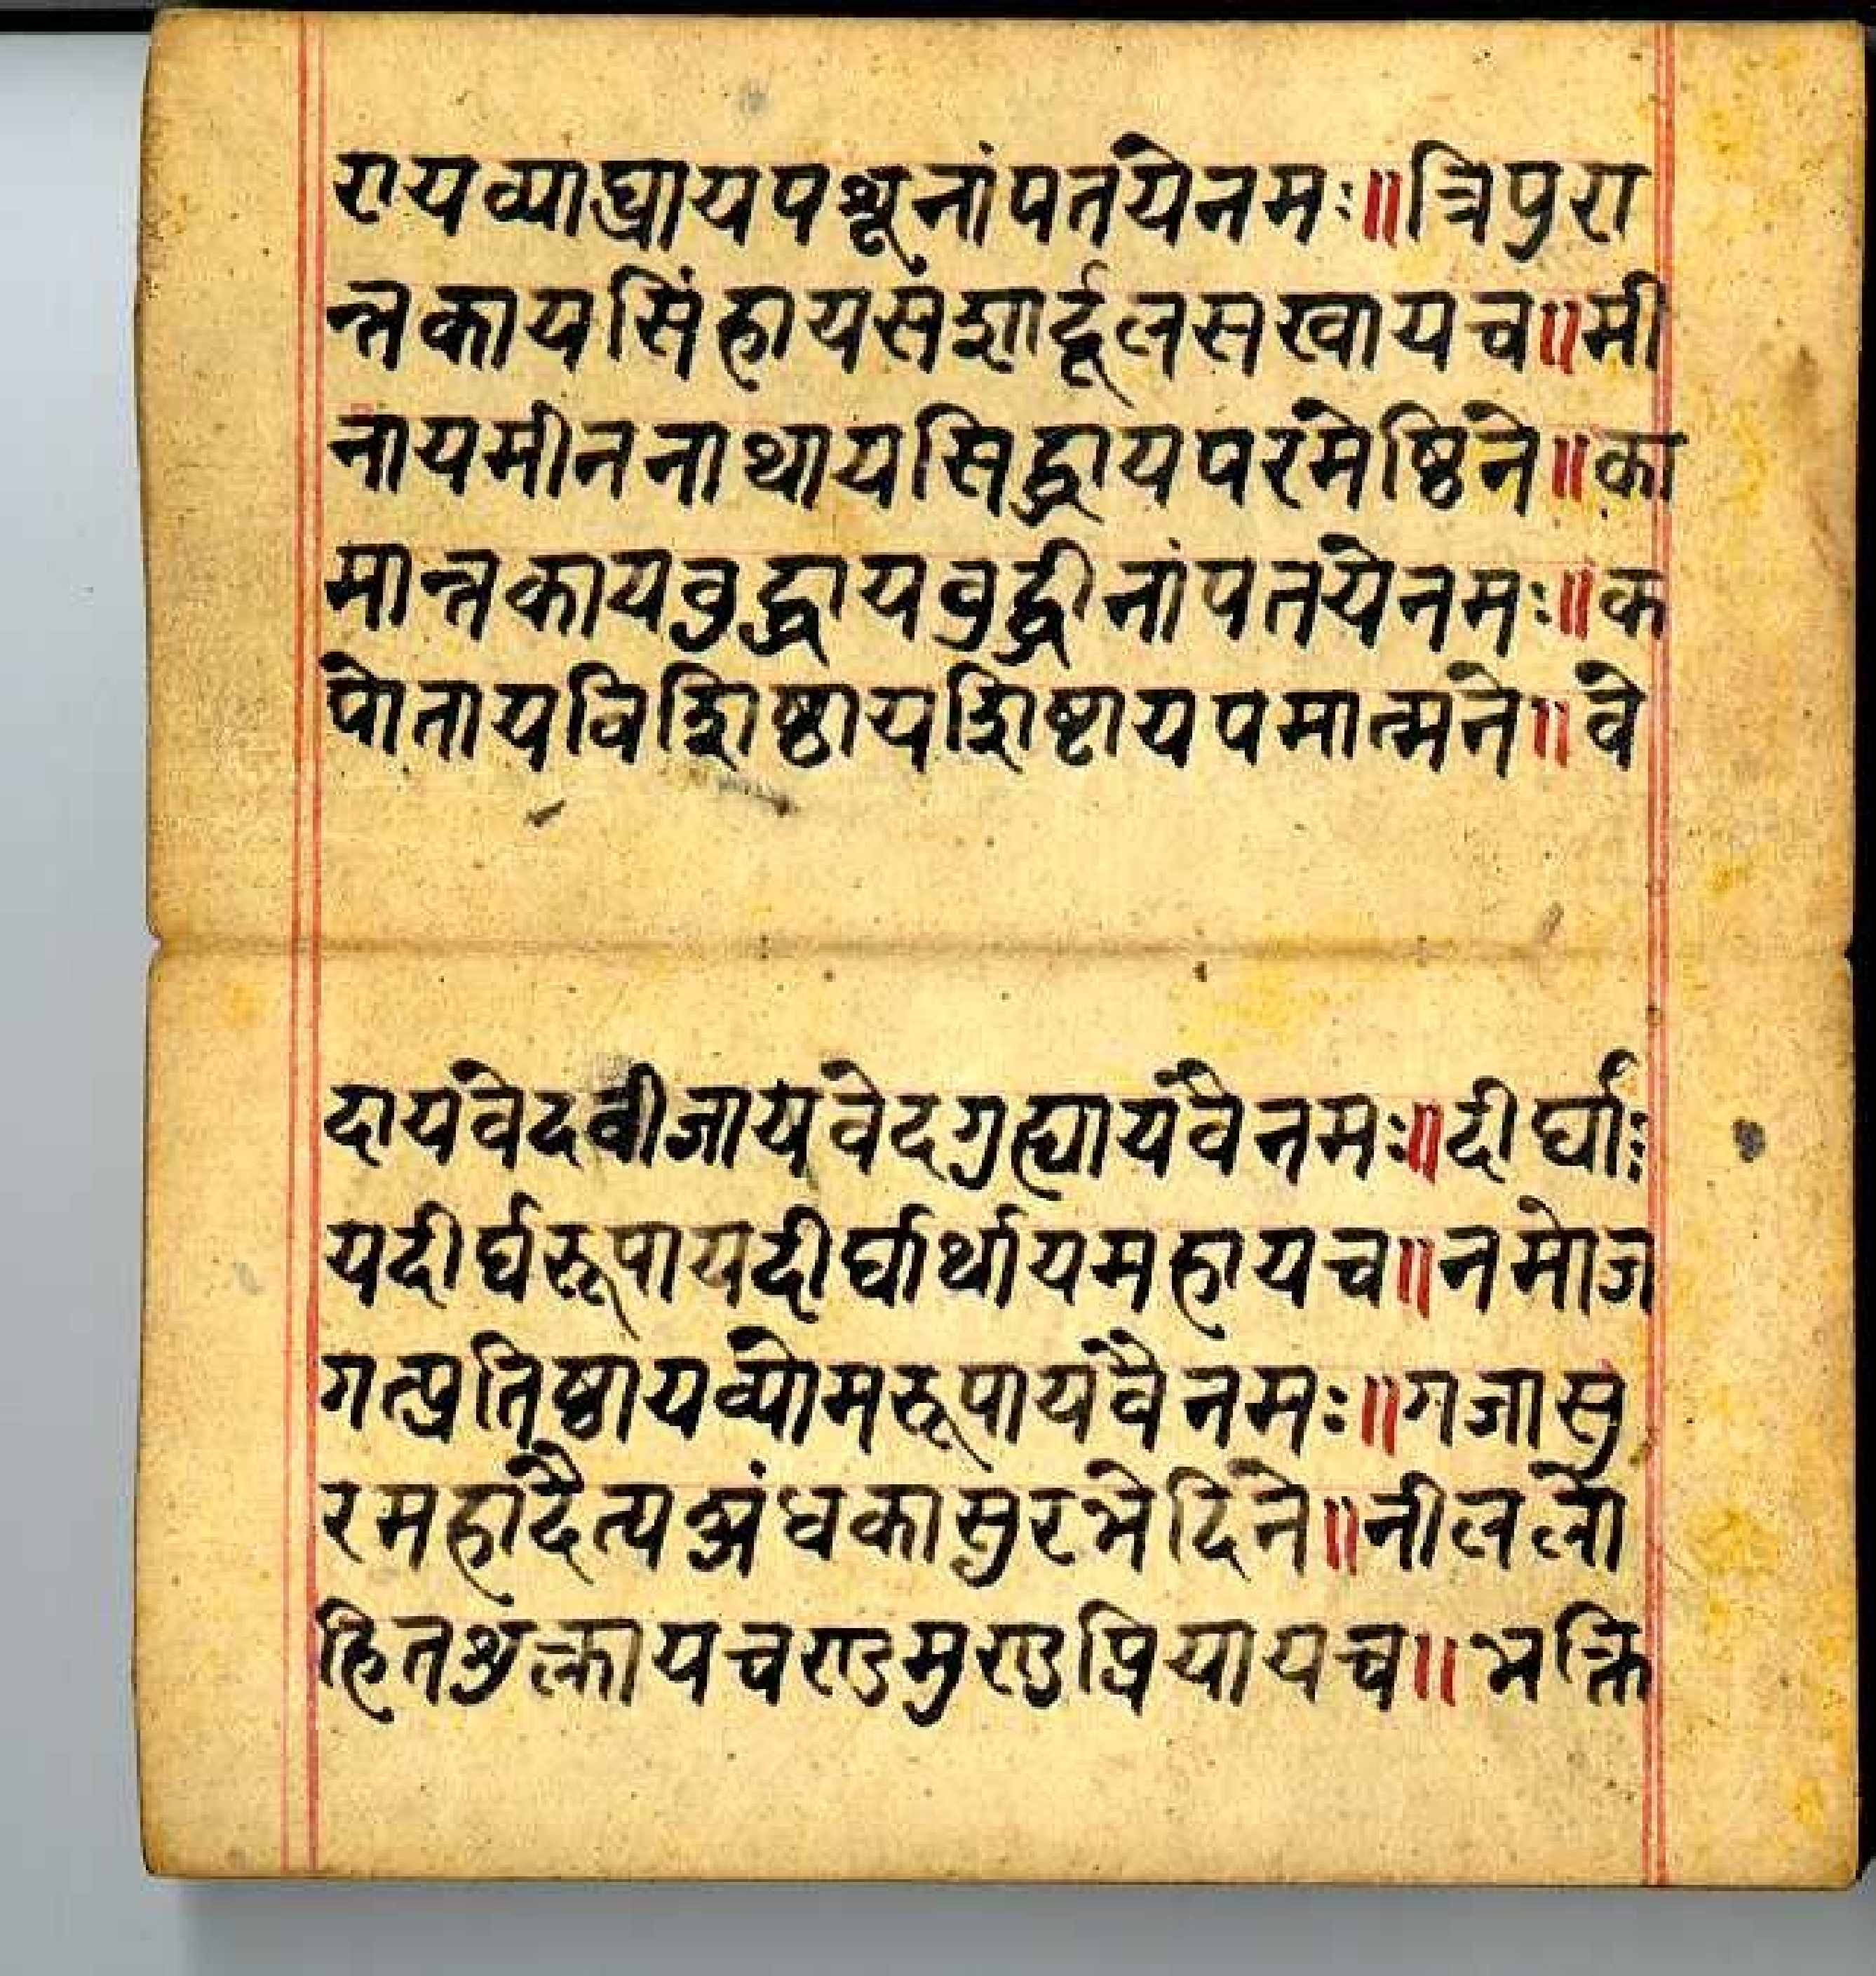 रायव्याघ्रायपशूनांपतयेनमः॥त्रिपुरा
न्तकायसिंहायसंशार्दूलसखायच॥मी
नायमीननाथायसिद्धायपरमेष्ठिने॥का
मान्तकायवुद्धायवुद्धीनांपतयेनमः॥क
पोतायविशिष्ठायशिष्टायपमात्मने॥वे
दायवेदवीजायवेदगुह्यायवैनमः॥दीर्घाः
यदीर्घरूपायदीर्घार्थायमहायच॥नमोज
गत्प्रतिष्ठायव्योमरूपायवैनमः॥गजासु
रमहादैत्यअंधकासुरभेदिने॥नीललो
हितशुक्लायचण्डमुण्डप्रियायच॥भक्ति